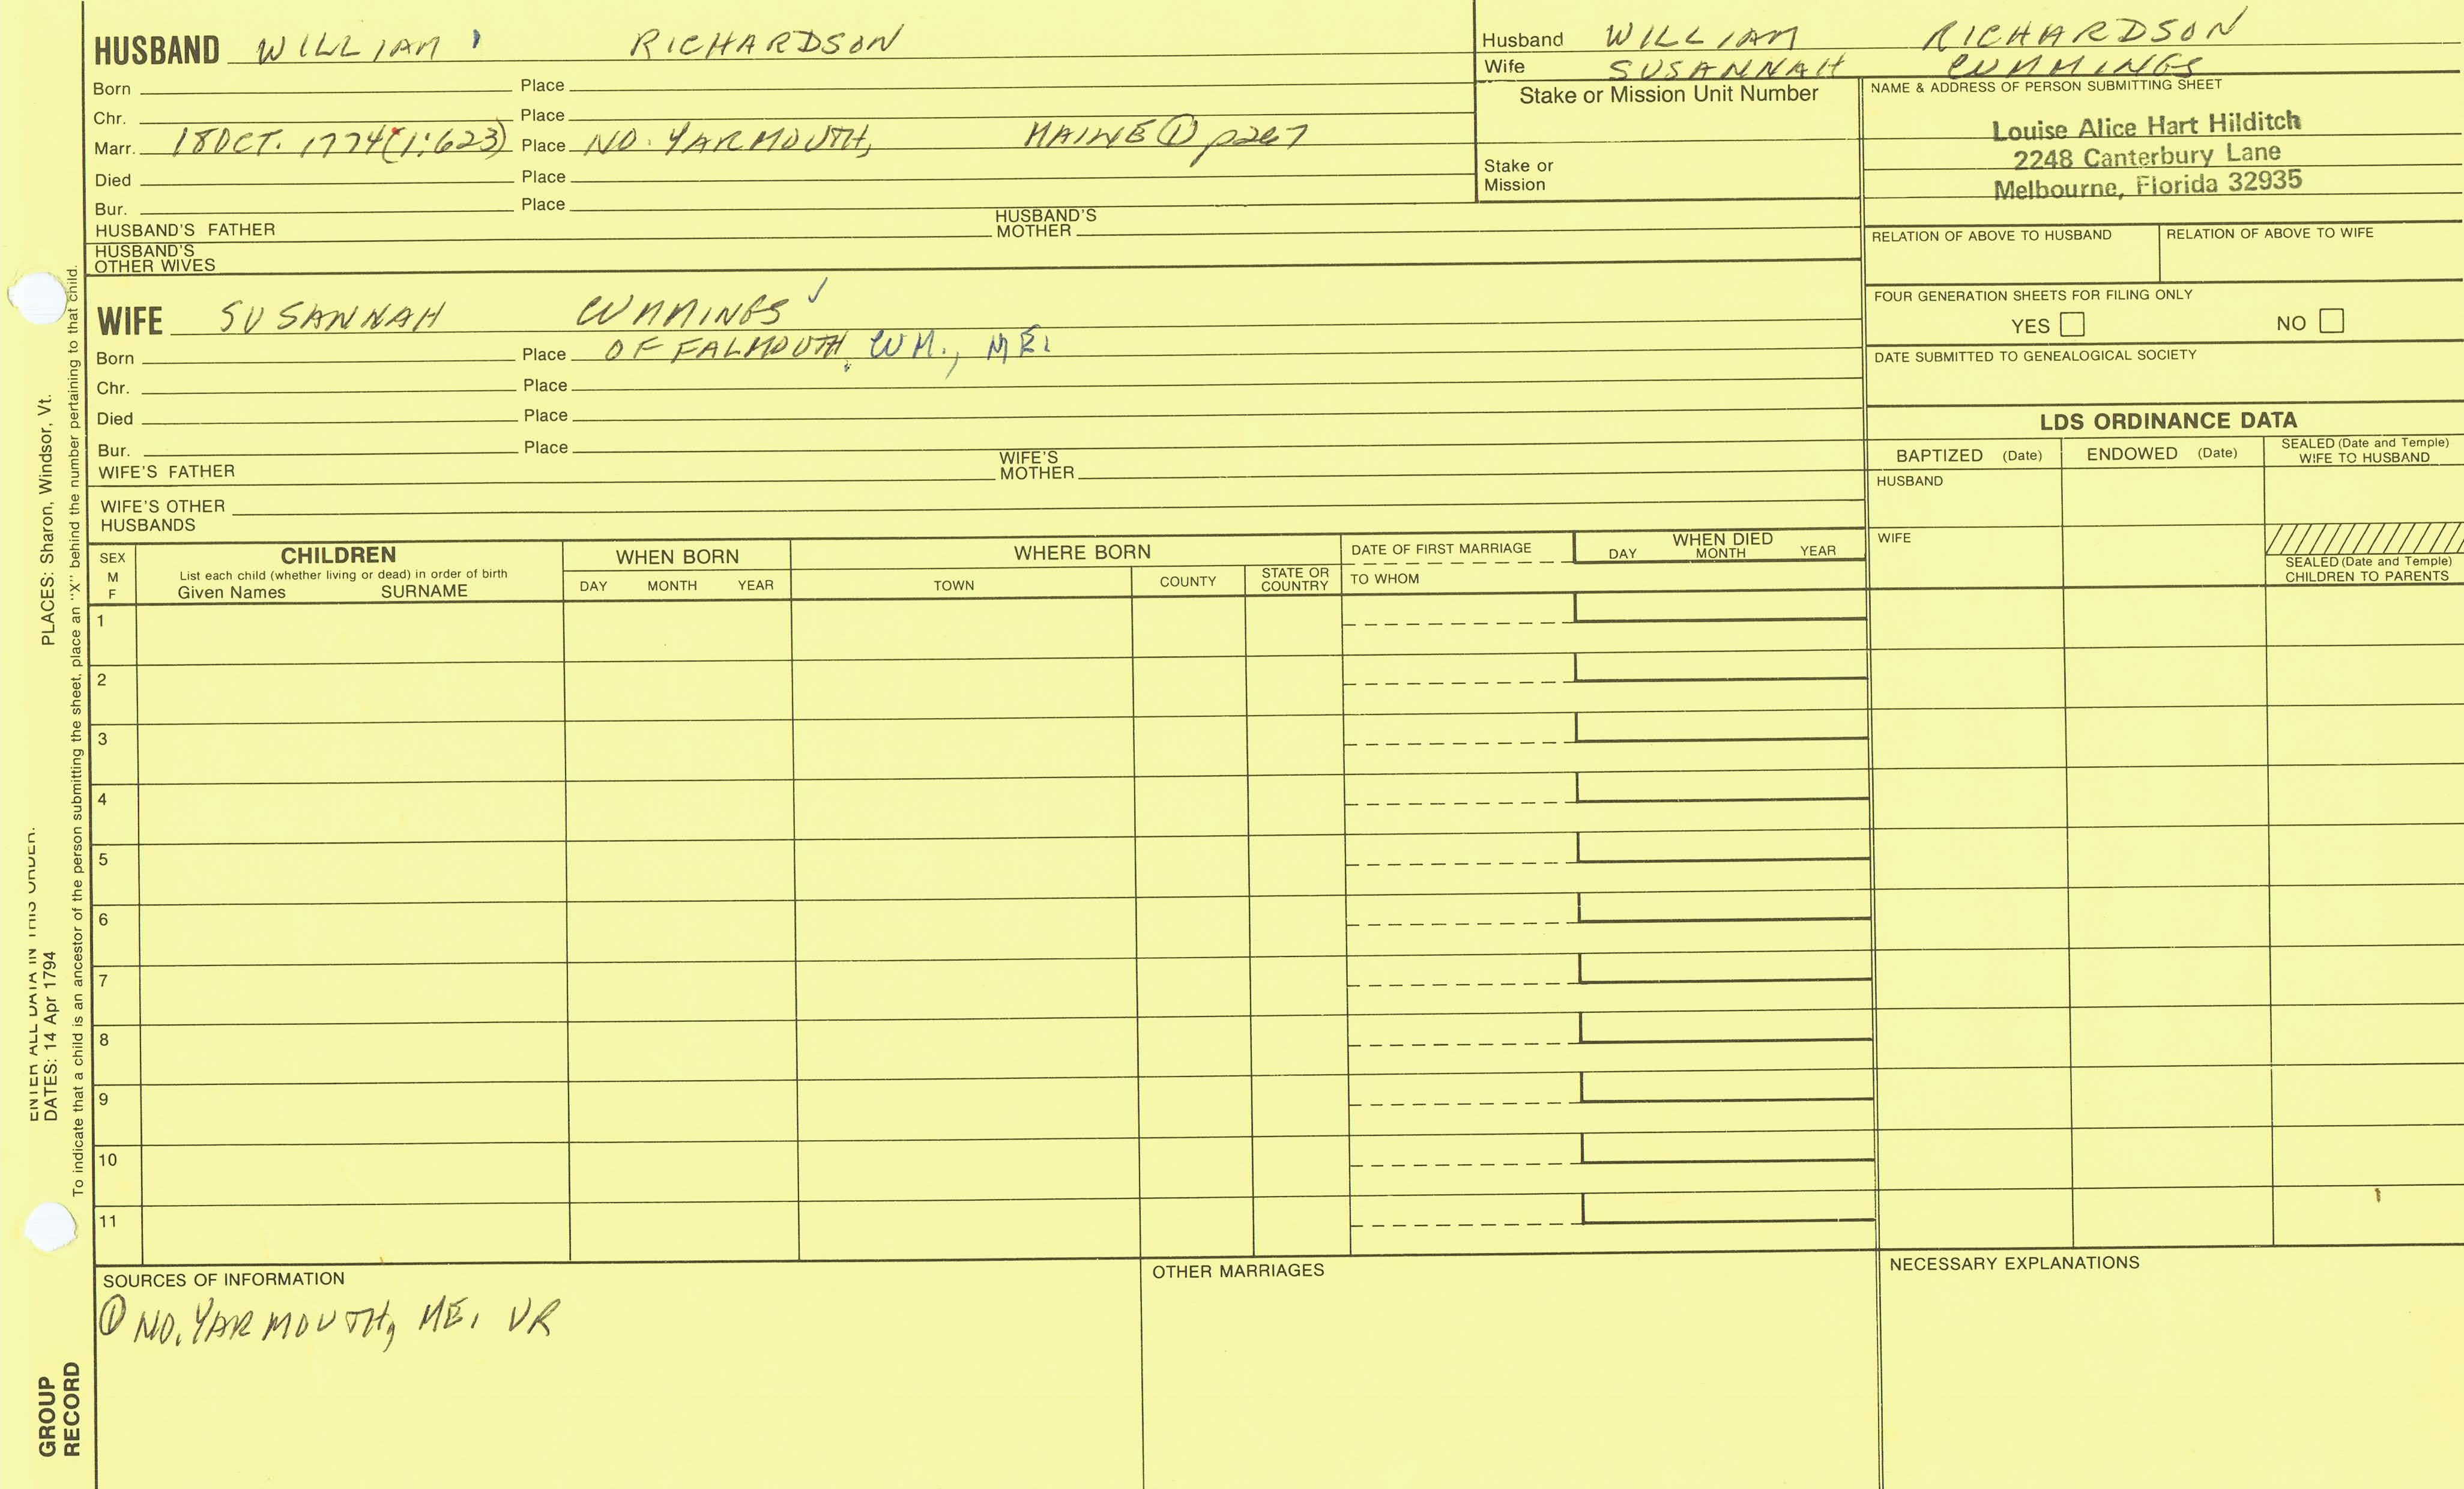 HUSBAND WILLIAM RICHARDSON
Born Place
Chr. Place
Marr. 18 OCT. 1774 (1:623) Place NO. YARMOUTH, MAINE ① p267
Died Place
Bur. Place
HUSBAND'S FATHER HUSBAND'S MOTHER
HUSBAND'S OTHER WIVES
Husband WILLIAM RICHARDSON
Wife SUSANNAH CUMMINGS
Stake or Mission Unit Number
Stake or Mission
NAME & ADDRESS OF PERSON SUBMITTING SHEET
Louise Alice Hart Hilditch
2248 Canterbury Lane
Melbourne, Florida 32935
RELATION OF ABOVE TO HUSBAND RELATION OF ABOVE TO WIFE
FOUR GENERATION SHEETS FOR FILING ONLY
YES NO
DATE SUBMITTED TO GENEALOGICAL SOCIETY
WIFE SUSANNAH CUMMINGS
Born Place OF FALMOUTH, CUM., ME.
Chr. Place
Died Place
Bur. Place
WIFE'S FATHER WIFE'S MOTHER
WIFE'S OTHER HUSBANDS
LDS ORDINANCE DATA
BAPTIZED (Date) ENDOWED (Date) SEALED (Date and Temple) WIFE TO HUSBAND
HUSBAND
WIFE
SEALED (Date and Temple) CHILDREN TO PARENTS
SEX M F
CHILDREN
List each child (whether living or dead) in order of birth
Given Names SURNAME
WHEN BORN
DAY MONTH YEAR
WHERE BORN
TOWN COUNTY STATE OR COUNTRY
DATE OF FIRST MARRIAGE
TO WHOM
WHEN DIED
DAY MONTH YEAR
1
2
3
4
5
6
7
8
9
10
11
SOURCES OF INFORMATION
① NO. YARMOUTH, ME. VR
OTHER MARRIAGES
NECESSARY EXPLANATIONS
ENTER ALL DATA IN THIS ORDER.
DATES: 14 Apr 1794 PLACES: Sharon, Windsor, Vt.
To indicate that a child is an ancestor of the person submitting the sheet, place an "X" behind the number pertaining to that child.
GROUP
RECORD